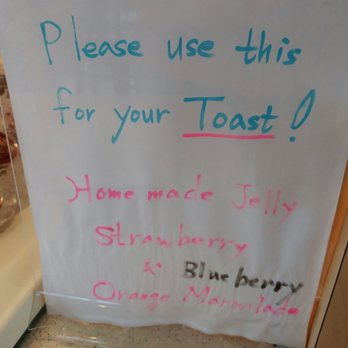 Please use this
for your Toast!
Home made Jelly
Strawberry
& Blueberry
Orange Marmalade